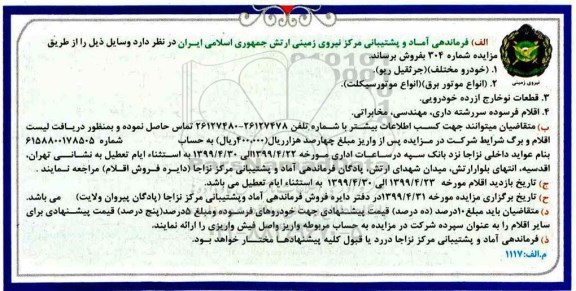 الف) فرماندهی آمـاد و پشتیبانی مرکز نیروی زمینی ارتش جمهوری اسلامی ایـران در نظر دارد وسایل ذیل را از طریق
مزایده شماره ۳۰۴ بفروش برساند.
۱. (خودرو مختلف)(جرثقیل ریو).
۲. (انواع موتور برق)(انواع موتورسیکلت).
نیروی زمینی
۳. قطعات نوخارج ازرده خودرویی.
۴. اقلام فرسوده سررشته داری، مهندسی، مخابراتی.
ب) متقاضیان میتوانند جهت کسب اطلاعات بیشتـر با شمـاره تلفن ۲۶۱۲۷۴۷۸-۲۶۱۲۷۴۸۰ تماس حاصل نموده و بمنظور دریـافت لیست
اقلام و برگ شرایط شرکت در مـزایده پس از واریز مبلغ چهارصد هزارریال(۴۰۰،۰۰۰ریال) به حساب شماره ۶۱۵۸۸۰۰۱۷۸۵۰۵
بنام عواید داخلی نزاجا نزد بانک سـپه درسـاعات اداری مـورخه ۱۳۹۹/۴/۲۲الی ۱۳۹۹/۴/۳۰ به استثناء ایام تعطیل به نشـانـی تهران،
اقدسیه، انتهای بلوارارتش، میدان شهدای ارتش، پادگان فرماندهی آماد و پشتیبانی مرکز نزاجا (دایـره فـروش اقـلام) مراجعه نمـایند .
ج) تاریخ بازدید اقلام مورخه ۱۳۹۹/۴/۲۳ الی ۱۳۹۹/۴/۳۰ به استثناء ایام تعطیل می باشد.
ح) تاریخ برگزاری مزایده مورخه ۱۳۹۹/۴/۳۱در دفتر دایره فروش فرماندهی آماد و پشتیبانی مرکز نزاجا (پادگان پیروان ولایت) می باشد.
د) متقاضیان باید مبلغ۱۰درصد (ده درصد) قیمت پیشنهادی جهت خودروهای فرسـوده ومبلغ ۵درصد(پنج درصد) قیمت پیشنهادی برای
سایر اقلام را به عنوان سپرده شرکت در مزایده به حساب مربوطه واریز واصل فیش واریزی را ارائه نمایند.
ذ) فرماندهی آماد و پشتیبانی مرکز نزاجا دررد یا قبول کلیه پیشنهادهـا مختـار خواهد بـود.
م.الف:۱۱۱۷